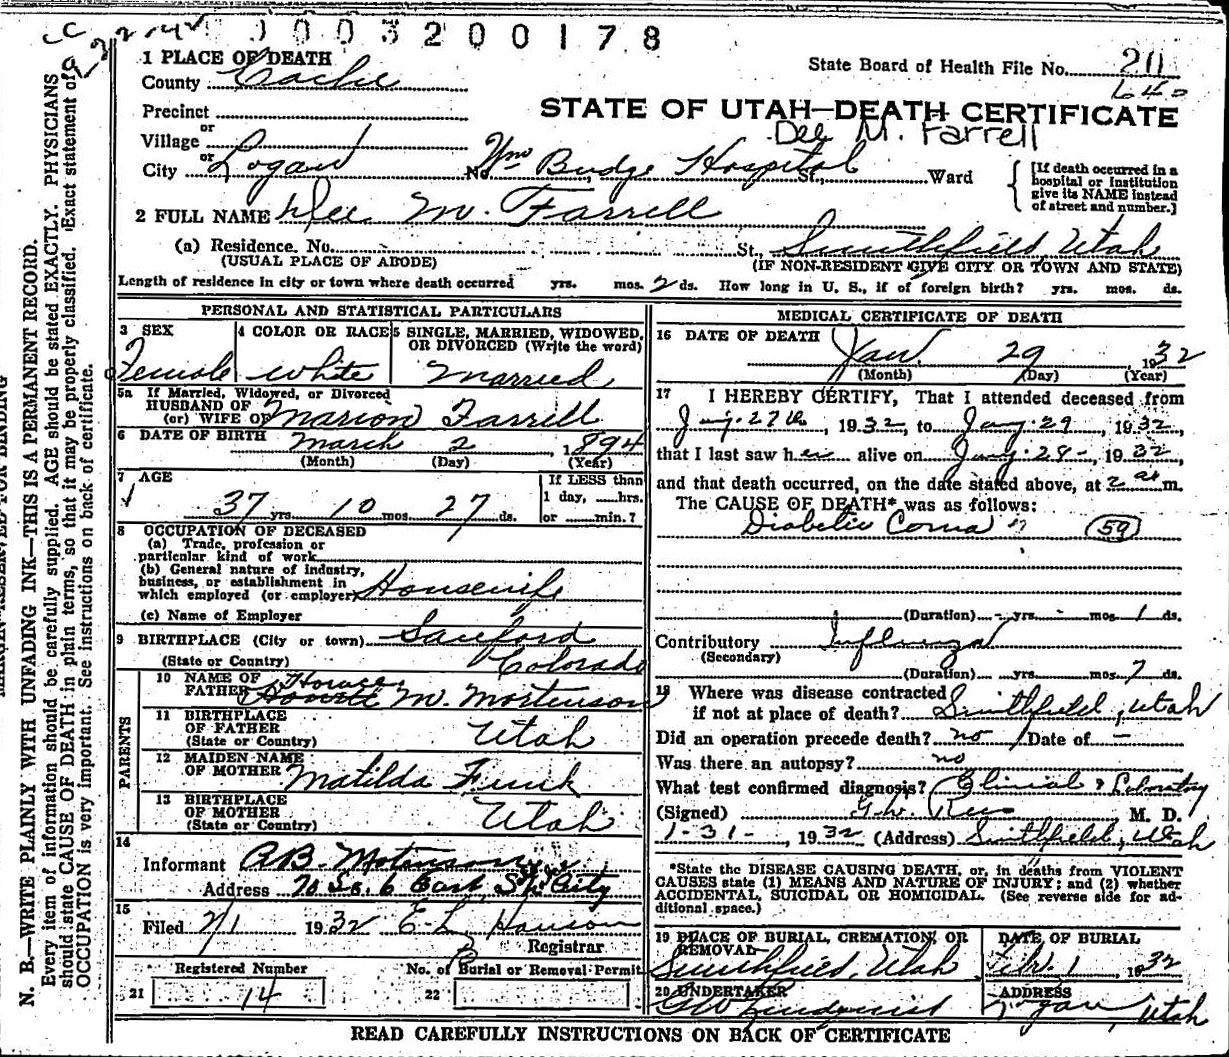 0003200178
1 PLACE OF DEATH
County Cache
State Board of Health File No. 20
640
Precinct
STATE OF UTAH—DEATH CERTIFICATE
Dee M. Farrell
or
Village
or
City Logan No. Wm Budge Hospital St., Ward
[If death occurred in a
hospital or institution
give its NAME instead
of street and number.]
2 FULL NAME Dee M. Farrell
(a) Residence. No. St., Smithfield, Utah
(USUAL PLACE OF ABODE) (IF NON-RESIDENT GIVE CITY OR TOWN AND STATE)
Length of residence in city or town where death occurred yrs. mos. 2 ds. How long in U. S., if of foreign birth? yrs. mos. ds.
PERSONAL AND STATISTICAL PARTICULARS
3 SEX
Female
4 COLOR OR RACE
White
5 SINGLE, MARRIED, WIDOWED,
OR DIVORCED (Write the word)
Married
5a If Married, Widowed, or Divorced
HUSBAND OF
(or) WIFE OF Marion Farrell
6 DATE OF BIRTH March 2 1894
(Month) (Day) (Year)
7 AGE
37 yrs. 10 mos. 27 ds.
If LESS than
1 day, hrs.
or min.?
8 OCCUPATION OF DECEASED
(a) Trade, profession or
particular kind of work
(b) General nature of industry,
business, or establishment in
which employed (or employer) Housewife
(c) Name of Employer
9 BIRTHPLACE (City or town) Sanford
(State or Country) Colorado
PARENTS
10 NAME OF
FATHER Horace M. Mortenson
11 BIRTHPLACE
OF FATHER
(State or Country) Utah
12 MAIDEN NAME
OF MOTHER Matilda Funk
13 BIRTHPLACE
OF MOTHER
(State or Country) Utah
14
Informant A.B. Motenson
Address 70 So. 6 East City
15
Filed 2/1 1932 E. L. Hanson
Registrar
Registered Number
21 14
No. of Burial or Removal Permit
22
MEDICAL CERTIFICATE OF DEATH
16 DATE OF DEATH
Jan 29 1932
(Month) (Day) (Year)
17 I HEREBY CERTIFY, That I attended deceased from
Jany. 27th, 1932, to Jany. 29, 1932,
that I last saw her alive on Jany. 28-, 1932,
and that death occurred, on the date stated above, at 2 am.
The CAUSE OF DEATH* was as follows:
Diabetic Coma 59
(Duration) - yrs. - mos. 1 ds.
Contributory Influenza
(Secondary)
(Duration) yrs. mos. 7 ds.
18 Where was disease contracted
if not at place of death? Smithfield, Utah
Did an operation precede death? no Date of —
Was there an autopsy? no
What test confirmed diagnosis? Clinical & Laboratory
(Signed) G.W. M. D.
1-31-, 1932 (Address) Smithfield, Utah
*State the DISEASE CAUSING DEATH, or, in deaths from VIOLENT
CAUSES state (1) MEANS AND NATURE OF INJURY; and (2) whether
ACCIDENTAL, SUICIDAL OR HOMICIDAL. (See reverse side for ad-
ditional space.)
19 PLACE OF BURIAL, CREMATION, OR
REMOVAL
Smithfield, Utah
DATE OF BURIAL
Feb. 1 1932
20 UNDERTAKER
GW Lindquist
ADDRESS
Logan, Utah
READ CAREFULLY INSTRUCTIONS ON BACK OF CERTIFICATE
N. B.—WRITE PLAINLY WITH UNFADING INK—THIS IS A PERMANENT RECORD.
Every item of information should be carefully supplied. AGE should be stated EXACTLY. PHYSICIANS
should state CAUSE OF DEATH in plain terms, so that it may be properly classified. Exact statement of
OCCUPATION is very important. See instructions on back of certificate.